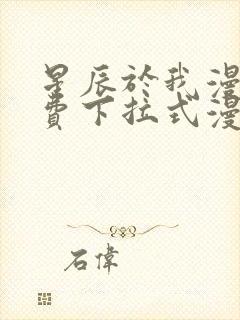 星辰於我漫
費下拉式漫
石偉